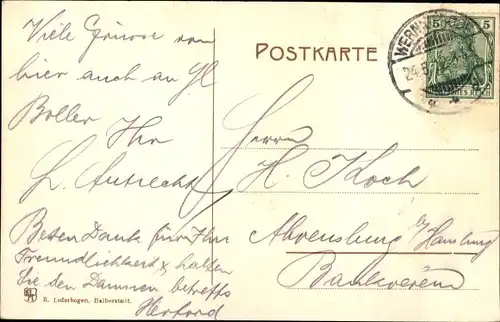 Viele Grüsse von
hier auch an Frl
Boller Ihr
L. Autrecht
Besten Dank für Ihre
Freundlichkeit & halten
Sie den Daumen betreffs
Herford
R. Lederbogen, Halberstadt.
POSTKARTE
5 5
DEUTSCHES REICH
WERNI
24.5
Herrn
H. Koch
Ahrensburg b/ Hamburg
Bankverein